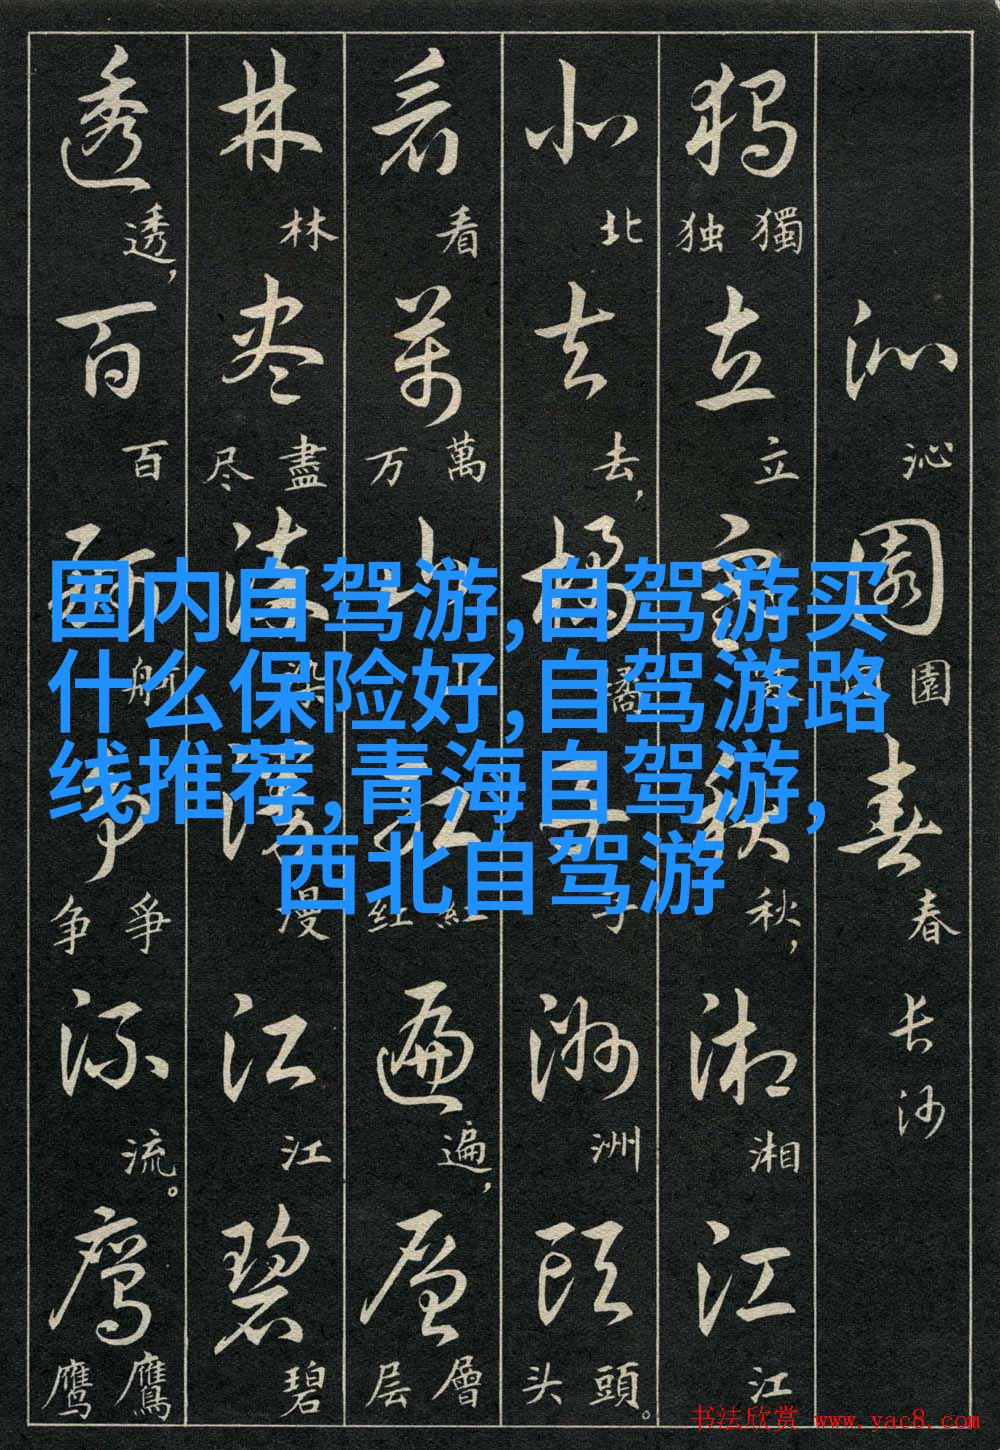 国内自驾游,自驾游买
什么保险好,自驾游路
线推荐,青海自驾游,
西北自驾游
沁 沁 園 園 春 春 长沙
独 獨 独 立 立 寒 秋 秋, 湘 湘 江 江
北 北 去 去, 橘 橘 子 子 洲 洲 頭 頭。 头
看 看 萬 萬 万 山 紅 紅 红 遍 遍, 層 層 层
林 林 尽 盡 尽 染 染 漫 漫 江 江 碧 碧
透 透, 百 百 舸 舸 争 爭 争 流 流。 鹰 鷹 鹰
书法欣赏 www.yac8.com